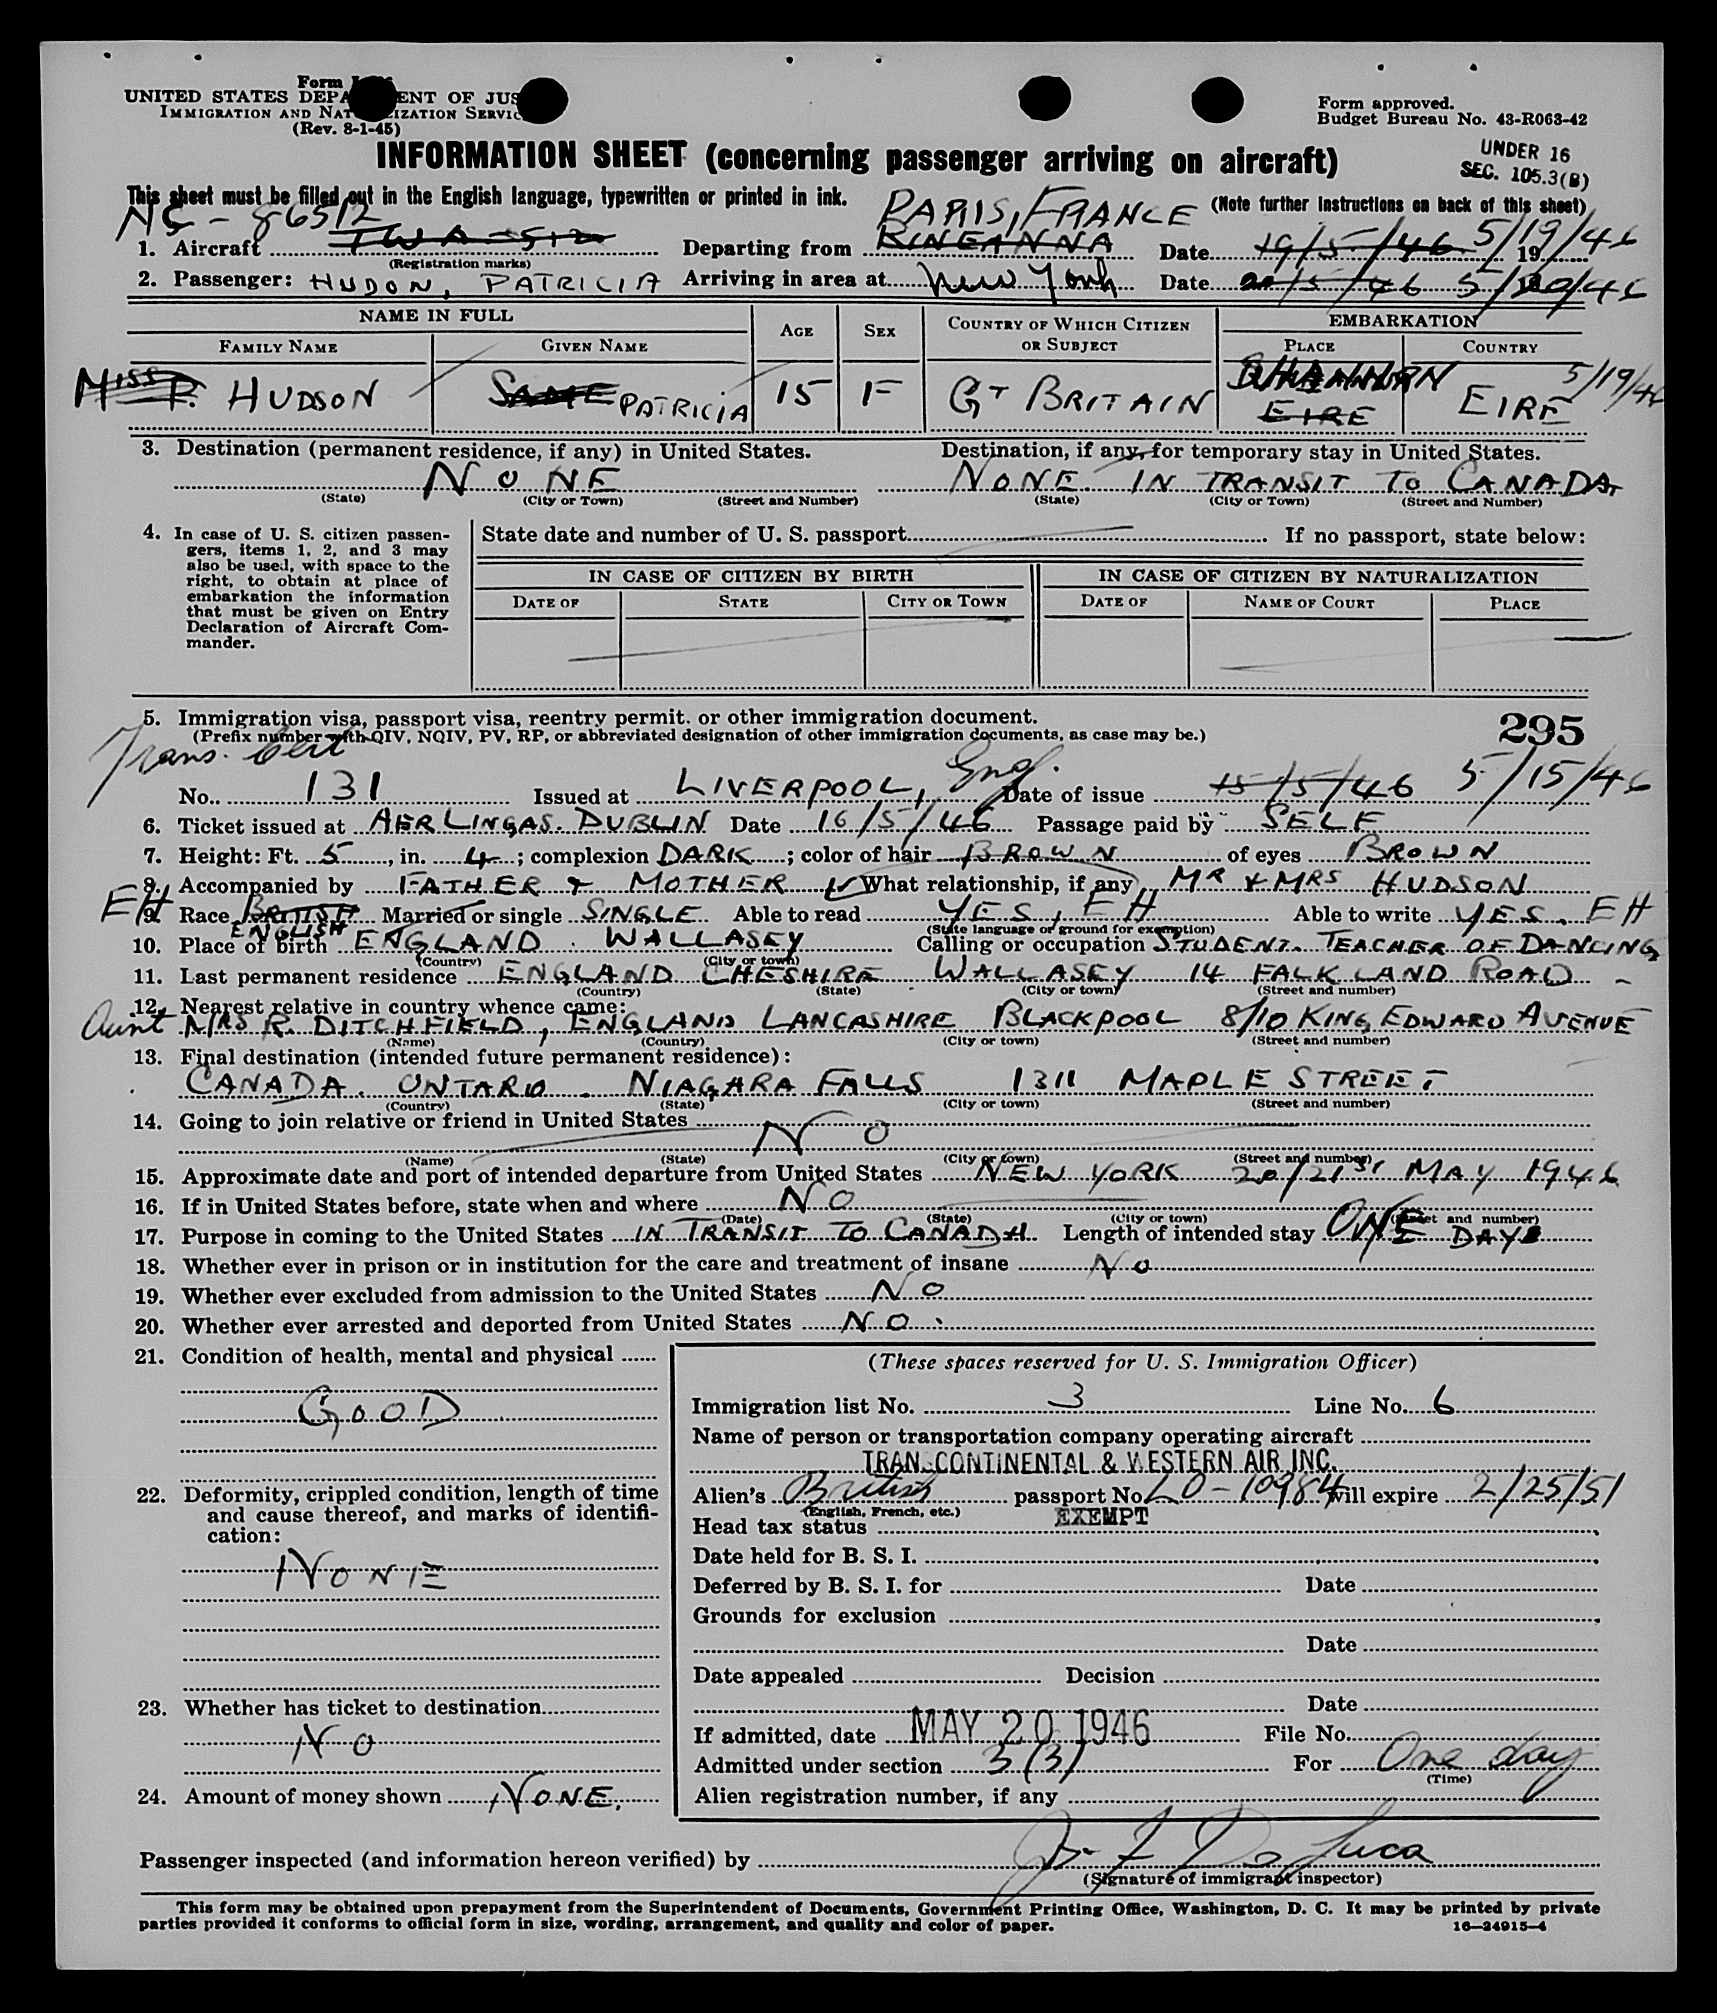 Form
UNITED STATES DEPA ENT OF JUS
IMMIGRATION AND NAT IZATION SERVIC
(Rev. 8-1-45)
Form approved.
Budget Bureau No. 43-R063-42
INFORMATION SHEET (concerning passenger arriving on aircraft)
UNDER 16
SEC. 105.3(B)
This sheet must be filled out in the English language, typewritten or printed in ink.
(Note further instructions on back of this sheet)
NC - 86512 PARIS, FRANCE
1. Aircraft TWA - 512 Departing from RINEANNA Date 19/5/46 5/19/46 19
(Registration marks)
2. Passenger: HUDON, PATRICIA Arriving in area at New York Date 20/5/46 5/20/46
NAME IN FULL AGE SEX COUNTRY OF WHICH CITIZEN OR SUBJECT EMBARKATION
FAMILY NAME GIVEN NAME PLACE COUNTRY
MISS P. HUDSON SAME PATRICIA 15 F GT BRITAIN EIRE EIRE 5/19/46
3. Destination (permanent residence, if any) in United States. Destination, if any, for temporary stay in United States.
NONE NONE. IN TRANSIT TO CANADA.
(State) (City or Town) (Street and Number) (State) (City or Town) (Street and Number)
4. In case of U. S. citizen passen-
gers, items 1, 2, and 3 may
also be used, with space to the
right, to obtain at place of
embarkation the information
that must be given on Entry
Declaration of Aircraft Com-
mander.
State date and number of U. S. passport If no passport, state below:
IN CASE OF CITIZEN BY BIRTH IN CASE OF CITIZEN BY NATURALIZATION
DATE OF STATE CITY OR TOWN DATE OF NAME OF COURT PLACE
5. Immigration visa, passport visa, reentry permit, or other immigration document.
(Prefix number with QIV, NQIV, PV, RP, or abbreviated designation of other immigration documents, as case may be.)
295
Trans. Cert
No. 131 Issued at LIVERPOOL, Eng. Date of issue 15/5/46 5/15/46
6. Ticket issued at AER LINGAS. DUBLIN Date 16/5/46 Passage paid by SELF
7. Height: Ft. 5, in. 4; complexion DARK; color of hair BROWN of eyes BROWN
8. Accompanied by FATHER & MOTHER What relationship, if any MR & MRS HUDSON
EH
9. Race BRITISH Married or single SINGLE Able to read YES, EH Able to write YES. EH
ENGLISH
(State language or ground for exemption)
10. Place of birth ENGLAND. WALLASEY Calling or occupation STUDENT. TEACHER OF DANCING
(Country) (City or town)
11. Last permanent residence ENGLAND CHESHIRE WALLASEY 14 FALKLAND ROAD
(Country) (State) (City or town) (Street and number)
12. Nearest relative in country whence came:
Aunt MRS R. DITCHFIELD, ENGLAND LANCASHIRE BLACKPOOL 8/10 KING EDWARD AVENUE
(Name) (Country) (City or town) (Street and number)
13. Final destination (intended future permanent residence):
CANADA. ONTARIO. NIAGARA FALLS 1311 MAPLE STREET
(Country) (State) (City or town) (Street and number)
14. Going to join relative or friend in United States
NO
(Name) (State) (City or town) (Street and number)
15. Approximate date and port of intended departure from United States NEW YORK 20/21st MAY 1946
16. If in United States before, state when and where NO
(Date) (State) (City or town) (Street and number)
17. Purpose in coming to the United States IN TRANSIT TO CANADA. Length of intended stay ONE DAY
18. Whether ever in prison or in institution for the care and treatment of insane NO
19. Whether ever excluded from admission to the United States NO
20. Whether ever arrested and deported from United States NO.
21. Condition of health, mental and physical
GOOD
22. Deformity, crippled condition, length of time
and cause thereof, and marks of identifi-
cation:
NONE
23. Whether has ticket to destination
NO
24. Amount of money shown NONE.
(These spaces reserved for U. S. Immigration Officer)
Immigration list No. 3 Line No. 6
Name of person or transportation company operating aircraft
TRANSCONTINENTAL & WESTERN AIR INC.
Alien's British passport No. LO-10984 will expire 2/25/51
(English, French, etc.)
Head tax status EXEMPT
Date held for B. S. I.
Deferred by B. S. I. for Date
Grounds for exclusion
Date
Date appealed Decision
Date
If admitted, date MAY 20 1946 File No.
Admitted under section 3(3) For One day
(Time)
Alien registration number, if any
Passenger inspected (and information hereon verified) by J. F. De Luca
(Signature of immigrant inspector)
This form may be obtained upon prepayment from the Superintendent of Documents, Government Printing Office, Washington, D. C. It may be printed by private
parties provided it conforms to official form in size, wording, arrangement, and quality and color of paper.
16—24915-4